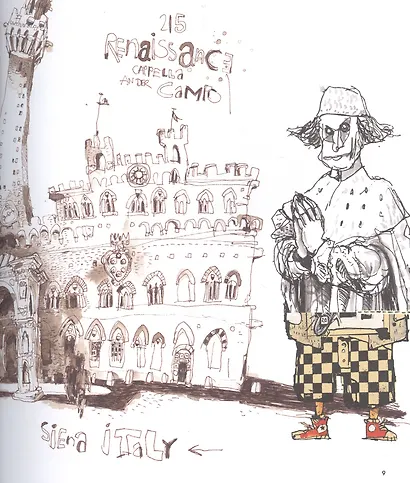 215
Renaissance
CAPPELLA
AN DER
CAMPO
SiENA iTALY
9